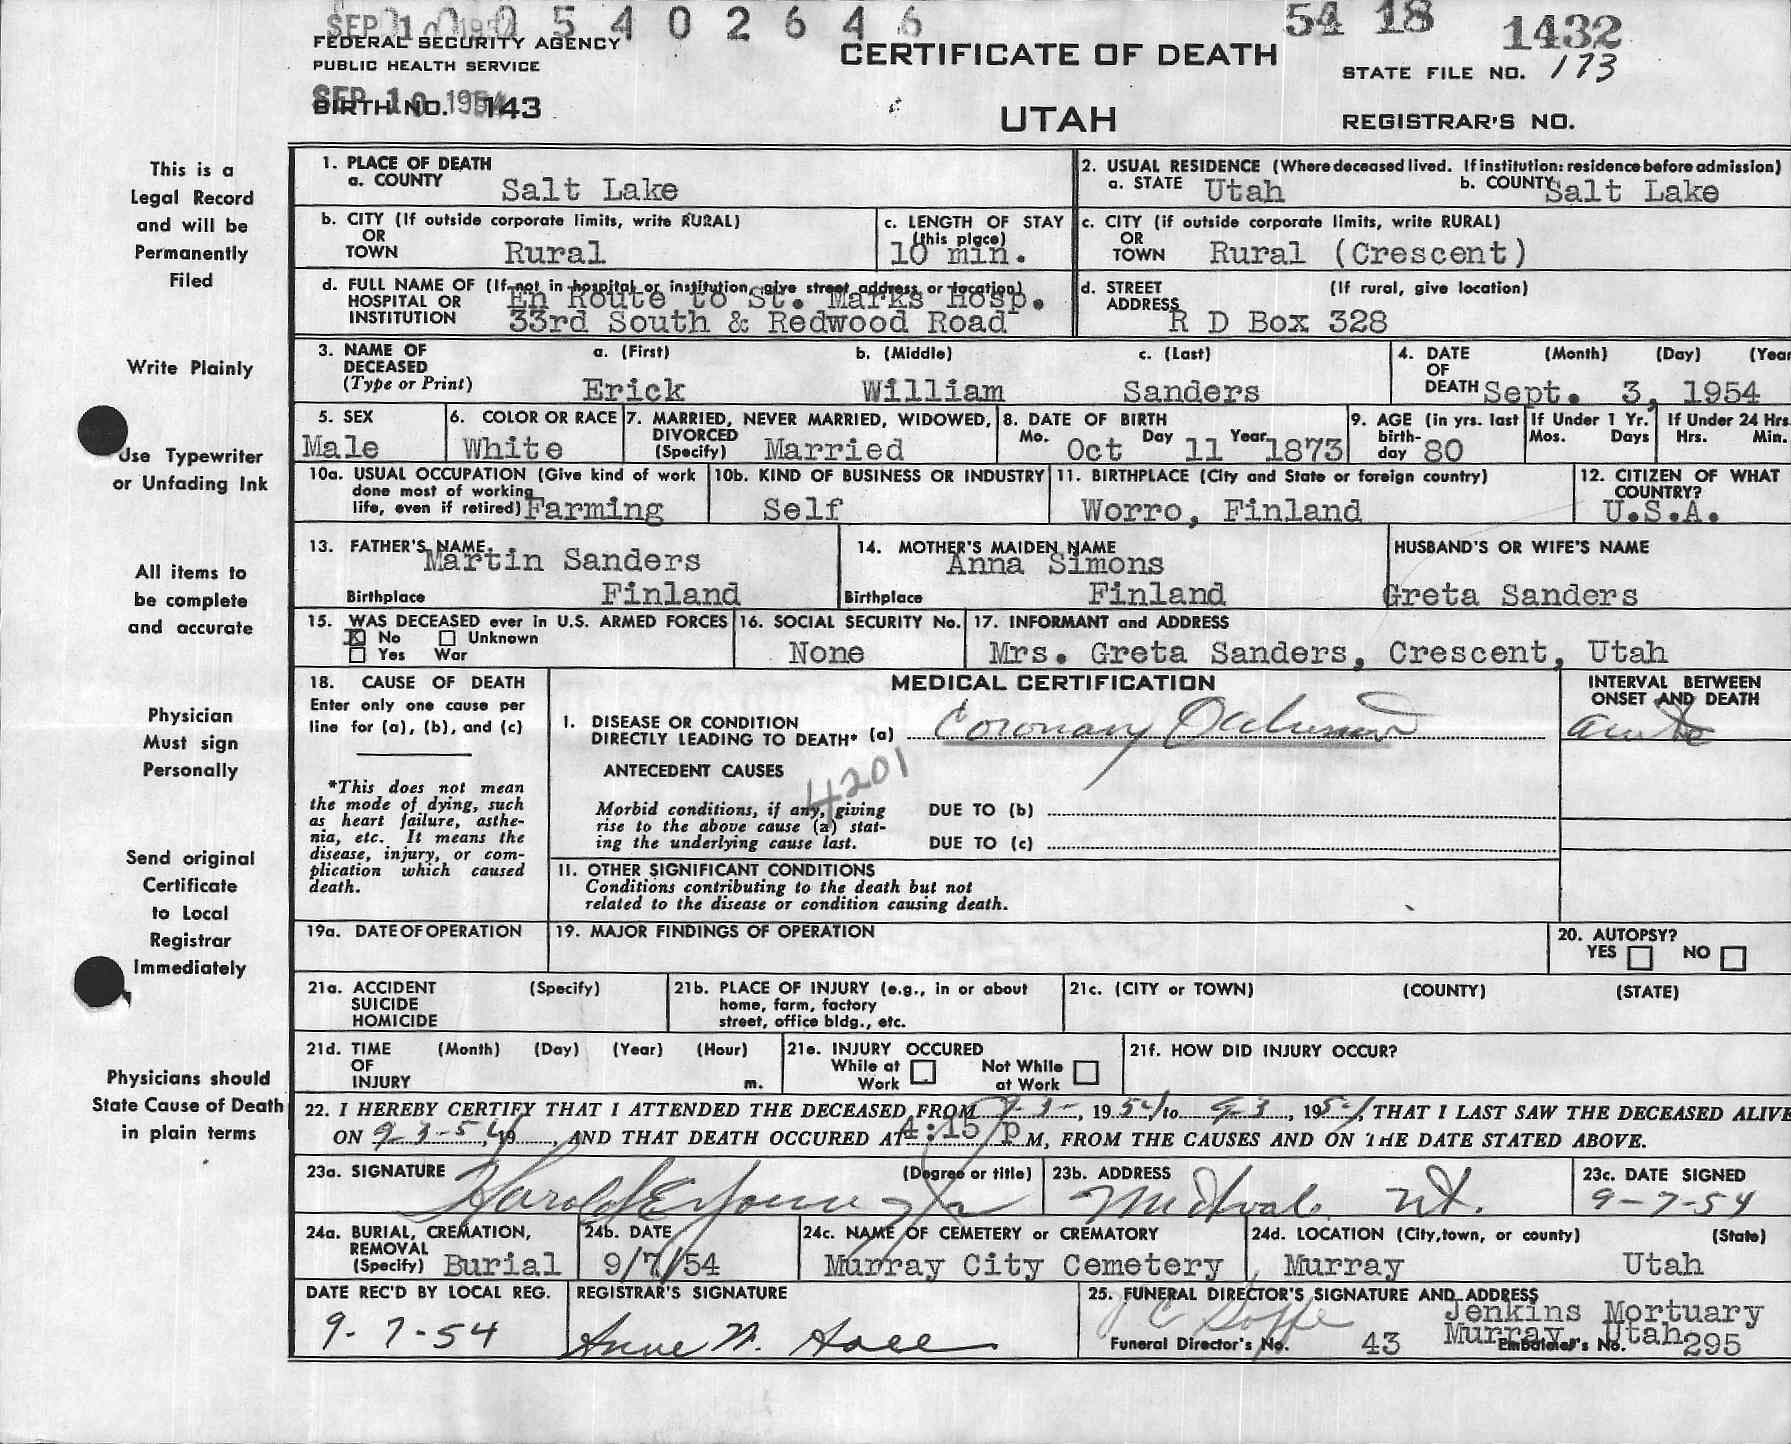 SEP 10 1954 0 5 4 0 2 6 4 6
54 18 1432
FEDERAL SECURITY AGENCY
PUBLIC HEALTH SERVICE
CERTIFICATE OF DEATH
STATE FILE NO. 173
SEP 10 1954
BIRTH NO. 143
UTAH
REGISTRAR'S NO.
This is a
Legal Record
and will be
Permanently
Filed
Write Plainly
Use Typewriter
or Unfading Ink
All items to
be complete
and accurate
Physician
Must sign
Personally
Send original
Certificate
to Local
Registrar
Immediately
Physicians should
State Cause of Death
in plain terms
1. PLACE OF DEATH
a. COUNTY Salt Lake
2. USUAL RESIDENCE (Where deceased lived. If institution: residence before admission)
a. STATE Utah b. COUNTY Salt Lake
b. CITY (If outside corporate limits, write RURAL)
OR
TOWN Rural
c. LENGTH OF STAY
(this place)
10 min.
c. CITY (if outside corporate limits, write RURAL)
OR
TOWN Rural (Crescent)
d. FULL NAME OF (If not in hospital or institution, give street address or location)
HOSPITAL OR En Route to St. Marks Hosp.
INSTITUTION 33rd South & Redwood Road
d. STREET (If rural, give location)
ADDRESS R D Box 328
3. NAME OF a. (First) b. (Middle) c. (Last)
DECEASED
(Type or Print) Erick William Sanders
4. DATE (Month) (Day) (Year
OF
DEATH Sept. 3, 1954
5. SEX
Male
6. COLOR OR RACE
White
7. MARRIED, NEVER MARRIED, WIDOWED,
DIVORCED
(Specify) Married
8. DATE OF BIRTH
Mo. Oct Day 11 Year 1873
9. AGE (in yrs. last
birth-
day 80
If Under 1 Yr.
Mos. Days
If Under 24 Hrs.
Hrs. Min.
10a. USUAL OCCUPATION (Give kind of work
done most of working
life, even if retired) Farming
10b. KIND OF BUSINESS OR INDUSTRY
Self
11. BIRTHPLACE (City and State or foreign country)
Worro, Finland
12. CITIZEN OF WHAT
COUNTRY?
U.S.A.
13. FATHER'S NAME
Martin Sanders
Birthplace Finland
14. MOTHER'S MAIDEN NAME
Anna Simons
Birthplace Finland
HUSBAND'S OR WIFE'S NAME
Greta Sanders
15. WAS DECEASED ever in U.S. ARMED FORCES
X No Unknown
Yes War
16. SOCIAL SECURITY No.
None
17. INFORMANT and ADDRESS
Mrs. Greta Sanders, Crescent, Utah
18. CAUSE OF DEATH
Enter only one cause per
line for (a), (b), and (c)
*This does not mean
the mode of dying, such
as heart failure, asthe-
nia, etc. It means the
disease, injury, or com-
plication which caused
death.
MEDICAL CERTIFICATION
INTERVAL BETWEEN
ONSET AND DEATH
I. DISEASE OR CONDITION
DIRECTLY LEADING TO DEATH* (a) Coronary Occlusion acute
ANTECEDENT CAUSES
4201
Morbid conditions, if any, giving DUE TO (b)
rise to the above cause (a) stat-
ing the underlying cause last. DUE TO (c)
II. OTHER SIGNIFICANT CONDITIONS
Conditions contributing to the death but not
related to the disease or condition causing death.
19a. DATE OF OPERATION
19. MAJOR FINDINGS OF OPERATION
20. AUTOPSY?
YES NO
21a. ACCIDENT (Specify)
SUICIDE
HOMICIDE
21b. PLACE OF INJURY (e.g., in or about
home, farm, factory
street, office bldg., etc.
21c. (CITY or TOWN) (COUNTY) (STATE)
21d. TIME (Month) (Day) (Year) (Hour)
OF
INJURY m.
21e. INJURY OCCURED
While at Not While
Work at Work
21f. HOW DID INJURY OCCUR?
22. I HEREBY CERTIFY THAT I ATTENDED THE DECEASED FROM 9-3-, 1954 to 9-3, 1954, THAT I LAST SAW THE DECEASED ALIVE
ON 9-3-54, 19, AND THAT DEATH OCCURED AT 4:15 P M, FROM THE CAUSES AND ON THE DATE STATED ABOVE.
23a. SIGNATURE (Degree or title)
Harold E
23b. ADDRESS
Midvale, Ut.
23c. DATE SIGNED
9-7-54
24a. BURIAL, CREMATION,
REMOVAL
(Specify) Burial
24b. DATE
9/7/54
24c. NAME OF CEMETERY or CREMATORY
Murray City Cemetery
24d. LOCATION (City, town, or county) (State)
Murray Utah
DATE REC'D BY LOCAL REG.
9-7-54
REGISTRAR'S SIGNATURE
Anne M.
25. FUNERAL DIRECTOR'S SIGNATURE AND ADDRESS
Jenkins Mortuary
Murray, Utah
Funeral Director's No. 43 Embalmer's No. 295